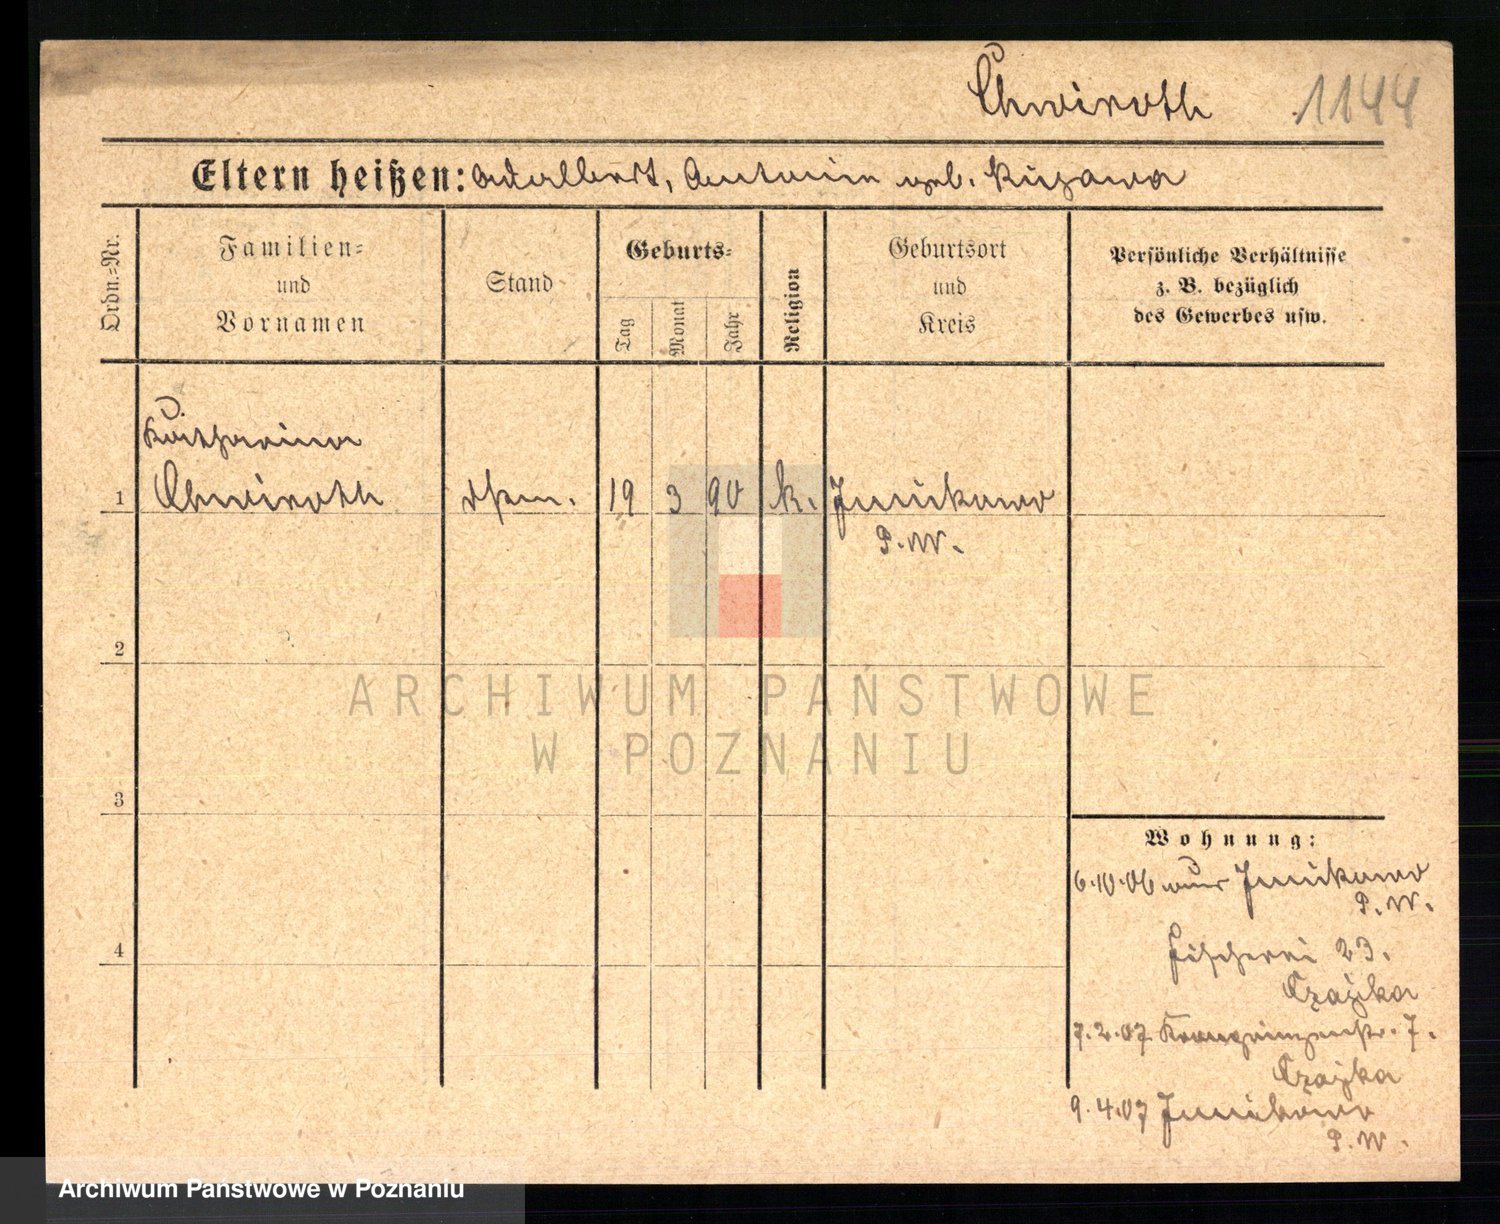 Chwiroth 1144
Eltern heißen: Adalbert, Antonie geb. Kuzawa
Ordn.=Nr.
Familien=
und
Vornamen
Stand
Geburts=
Tag
Monat
Jahr
Religion
Geburtsort
und
Kreis
Persönliche Verhältnisse
z. B. bezüglich
des Gewerbes usw.
Katharina
1 Chwiroth 19 3 90 k. Junikowo
P.W.
2
3
4
Wohnung:
6.10.06 Junikowo
P.W.
Fischerei 23.
Czajka
7.2.07 Kronprinzenstr. 7.
Czajka
9.4.07 Junikowo
P.W.
ARCHIWUM PAŃSTWOWE
W POZNANIU
Archiwum Państwowe w Poznaniu